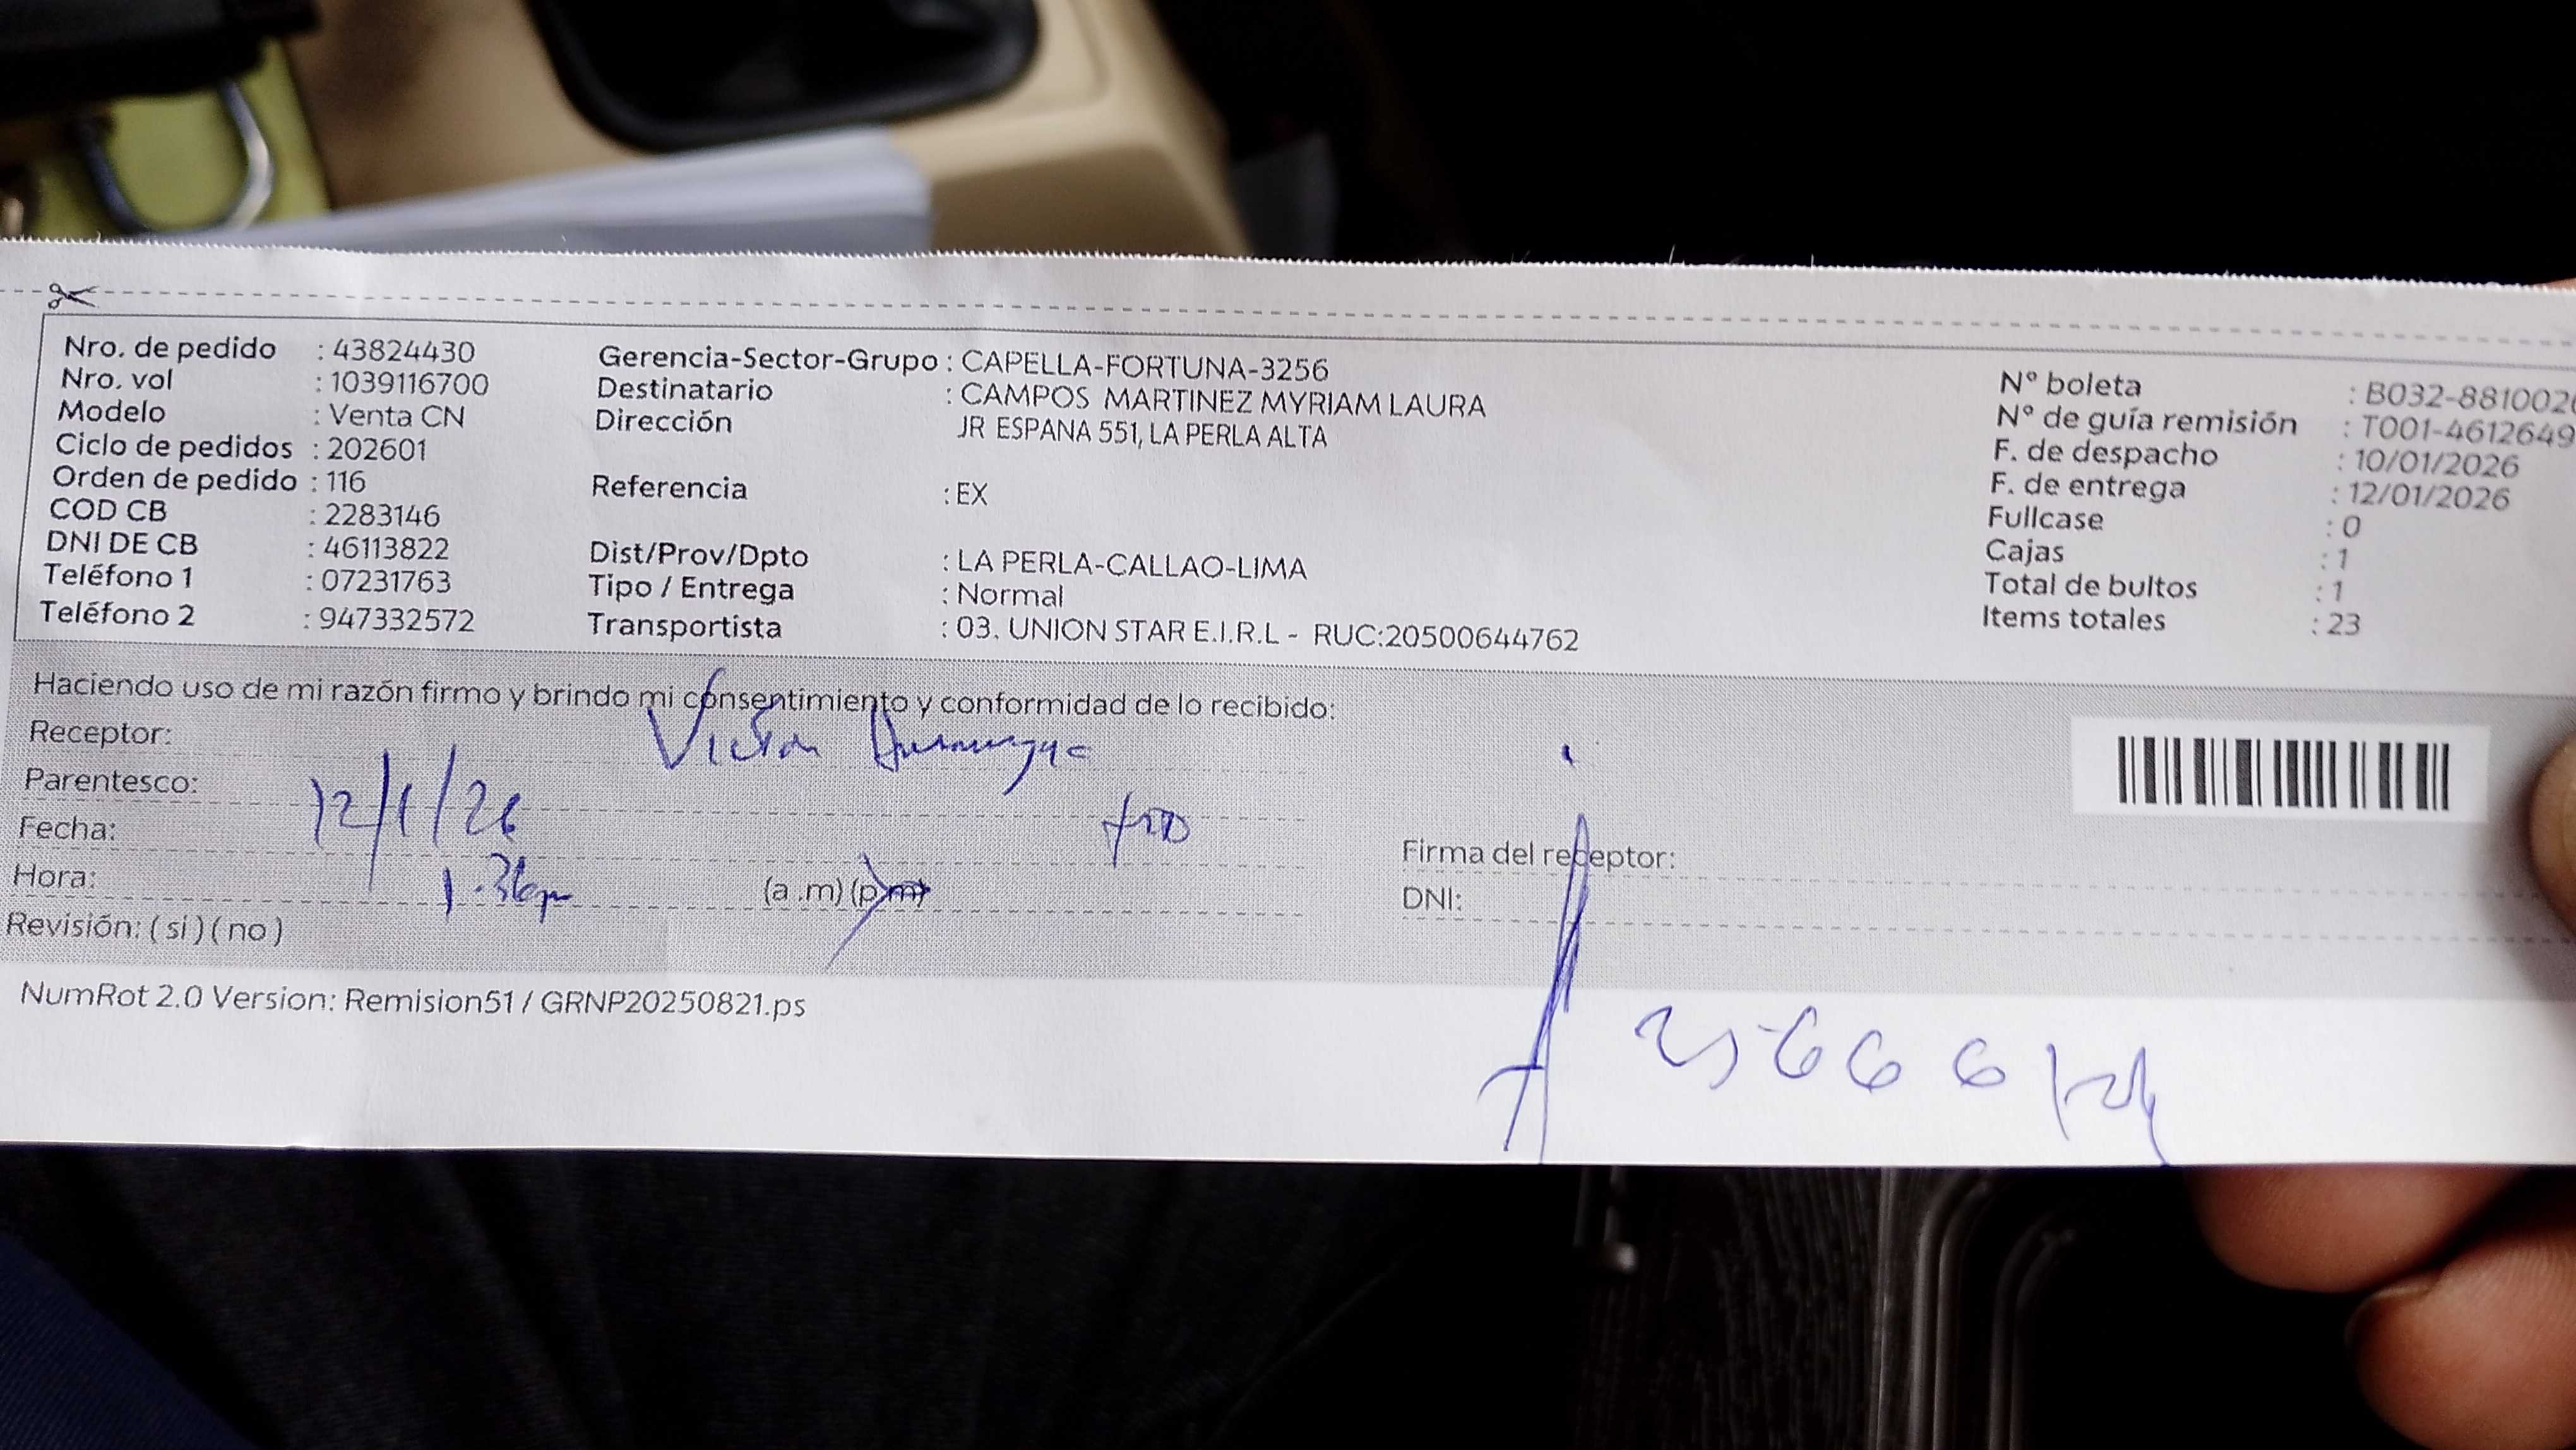 Nro. de pedido : 43824430
Nro. vol : 1039116700
Modelo : Venta CN
Ciclo de pedidos : 202601
Orden de pedido : 116
COD CB : 2283146
DNI DE CB : 46113822
Teléfono 1 : 07231763
Teléfono 2 : 947332572
Gerencia-Sector-Grupo : CAPELLA-FORTUNA-3256
Destinatario : CAMPOS MARTINEZ MYRIAM LAURA
Dirección JR ESPANA 551, LA PERLA ALTA
Referencia : EX
Dist/Prov/Dpto : LA PERLA-CALLAO-LIMA
Tipo / Entrega : Normal
Transportista : 03. UNION STAR E.I.R.L - RUC:20500644762
N° boleta : B032-881002
N° de guía remisión : T001-4612649
F. de despacho : 10/01/2026
F. de entrega : 12/01/2026
Fullcase : 0
Cajas : 1
Total de bultos : 1
Items totales : 23
Haciendo uso de mi razón firmo y brindo mi consentimiento y conformidad de lo recibido:
Receptor: Victor
Parentesco:
Fecha: 12/1/26
Hora: 1.36pm (a.m) (p.m)
Revisión: ( si ) ( no )
Firma del receptor:
DNI:
NumRot 2.0 Version: Remision51 / GRNP20250821.ps